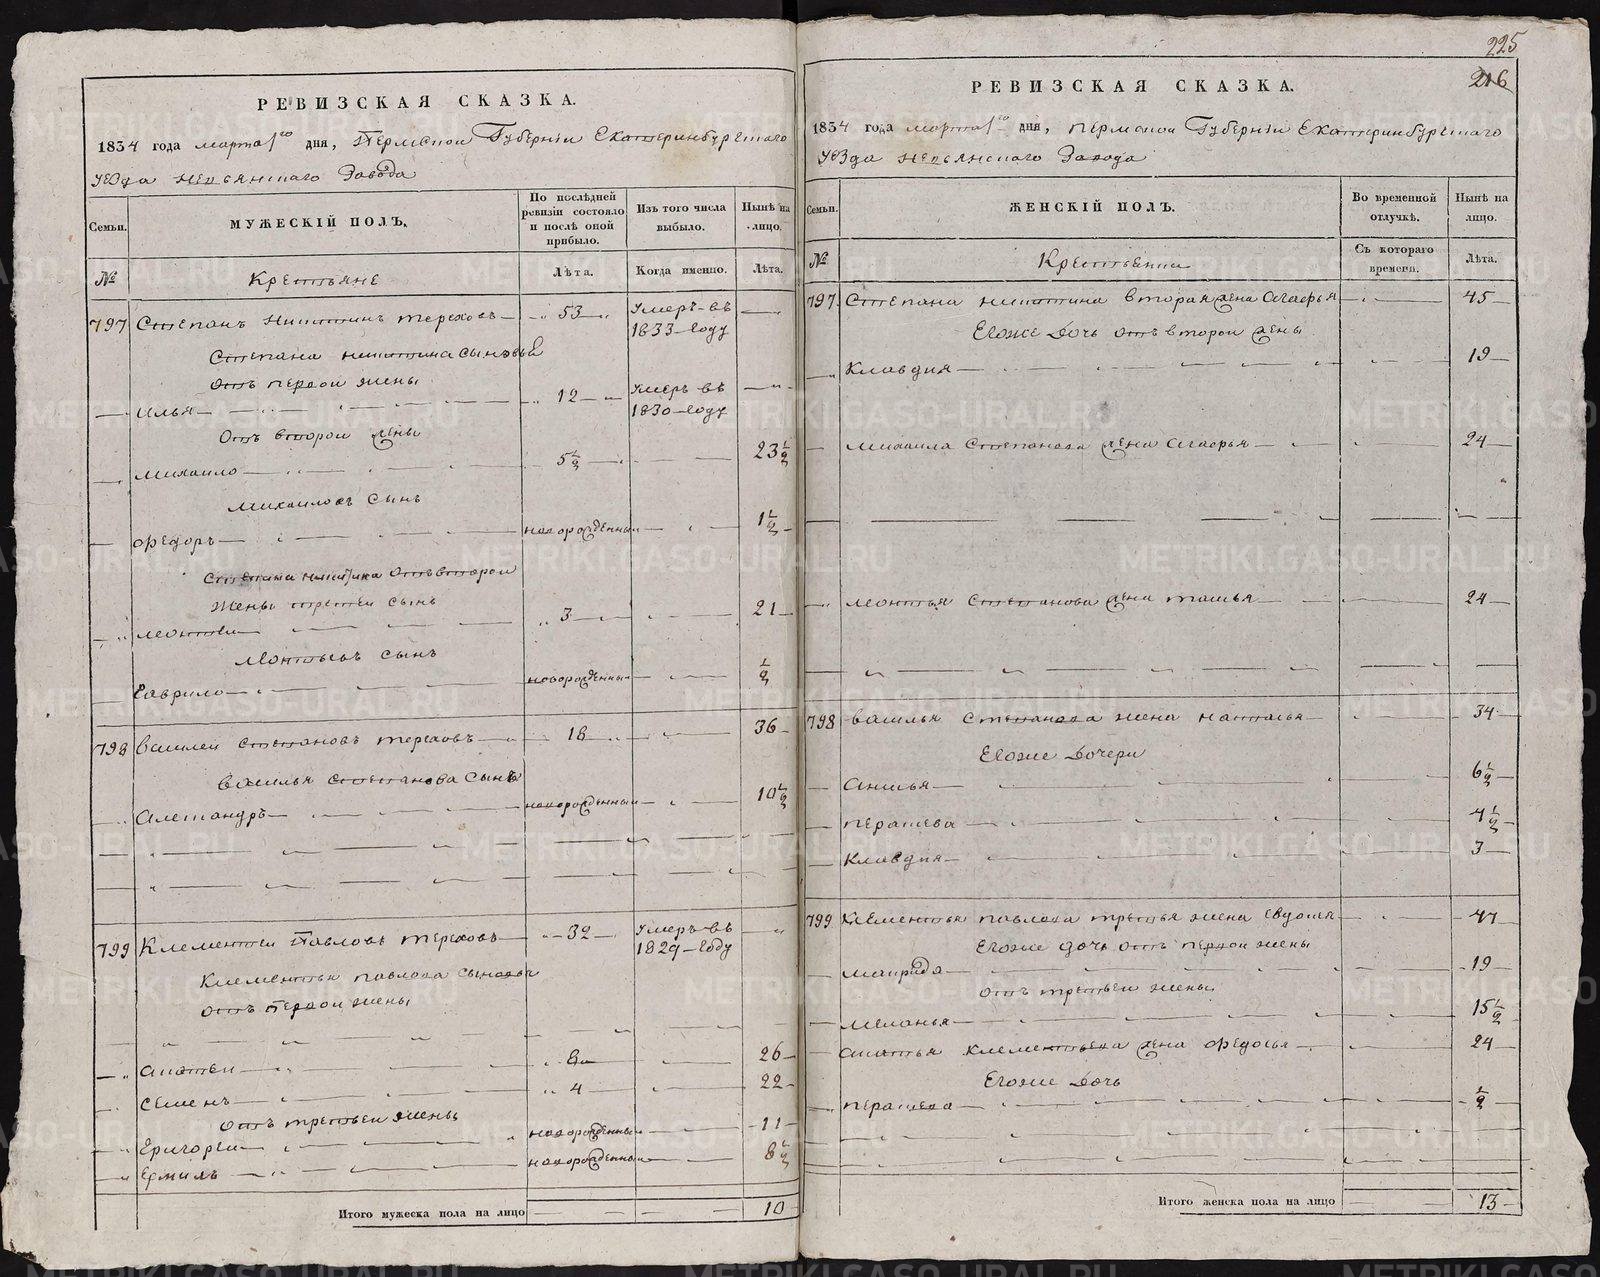 225
216
РЕВИЗСКАЯ СКАЗКА.
1834 года марта 1го дня, Пермской Губерніи Екатеринбургскаго
уезда невьянскаго Завода
Семьи.
МУЖЕСКІЙ ПОЛЪ.
По послѣдней ревизіи состояло и послѣ оной прибыло.
Изъ того числа выбыло.
Нынѣ на лицо.
№
Крестьяне
Лѣта.
Когда именно.
Лѣта.
797 Степанъ никитинъ тереховъ 53 умеръ въ 1833 году
Степана никитина сыновья
отъ первой жены
илья 12 умеръ въ 1830 году
отъ второй жены
михаило 5 1/2 23 1/2
михаиловъ сынъ
федоръ новорожденный 1 1/2
Степана никитина отъ второй
жены третей сынъ
леонтей 3 21
леонтьевъ сынъ
гаврило новорожденный 1/2
798 василей степановъ тереховъ 18 36
василья степанова сынъ
александръ новорожденный 10 1/2
799 Клементей Павловъ тереховъ 32 умеръ въ 1829 году
Клементья павлова сыновья
отъ первой жены
8 26
семенъ 4 22
отъ третьей жены
григорей новорожденный 11
новорожденный 8 1/2
Итого мужеска пола на лицо 10
РЕВИЗСКАЯ СКАЗКА.
1834 года марта 1го дня, пермской Губерніи Екатеринбургскаго
уезда невьянскаго Завода
Семьи.
ЖЕНСКІЙ ПОЛЪ.
Во временной отлучкѣ.
Нынѣ на лицо.
№
Съ котораго времени.
Лѣта.
797 Степана никитина вторая жена Агафья 45
Егоже дочь отъ второй жены
Клавдия 19
михаила степанова жена Агафья 24
леонтья степанова жена 24
798 василья степанова жена наталья 34
Егоже дочери
6 1/2
4 1/2
Клавдия 3
799 Клементья павлова третья жена 47
Егоже дочь отъ первой жены
19
отъ третьей жены
меланья 15 1/2
клементьева жена федосья 24
Егоже дочь
1/2
Итого женска пола на лицо 13
METRIKI.GASO-URAL.RU